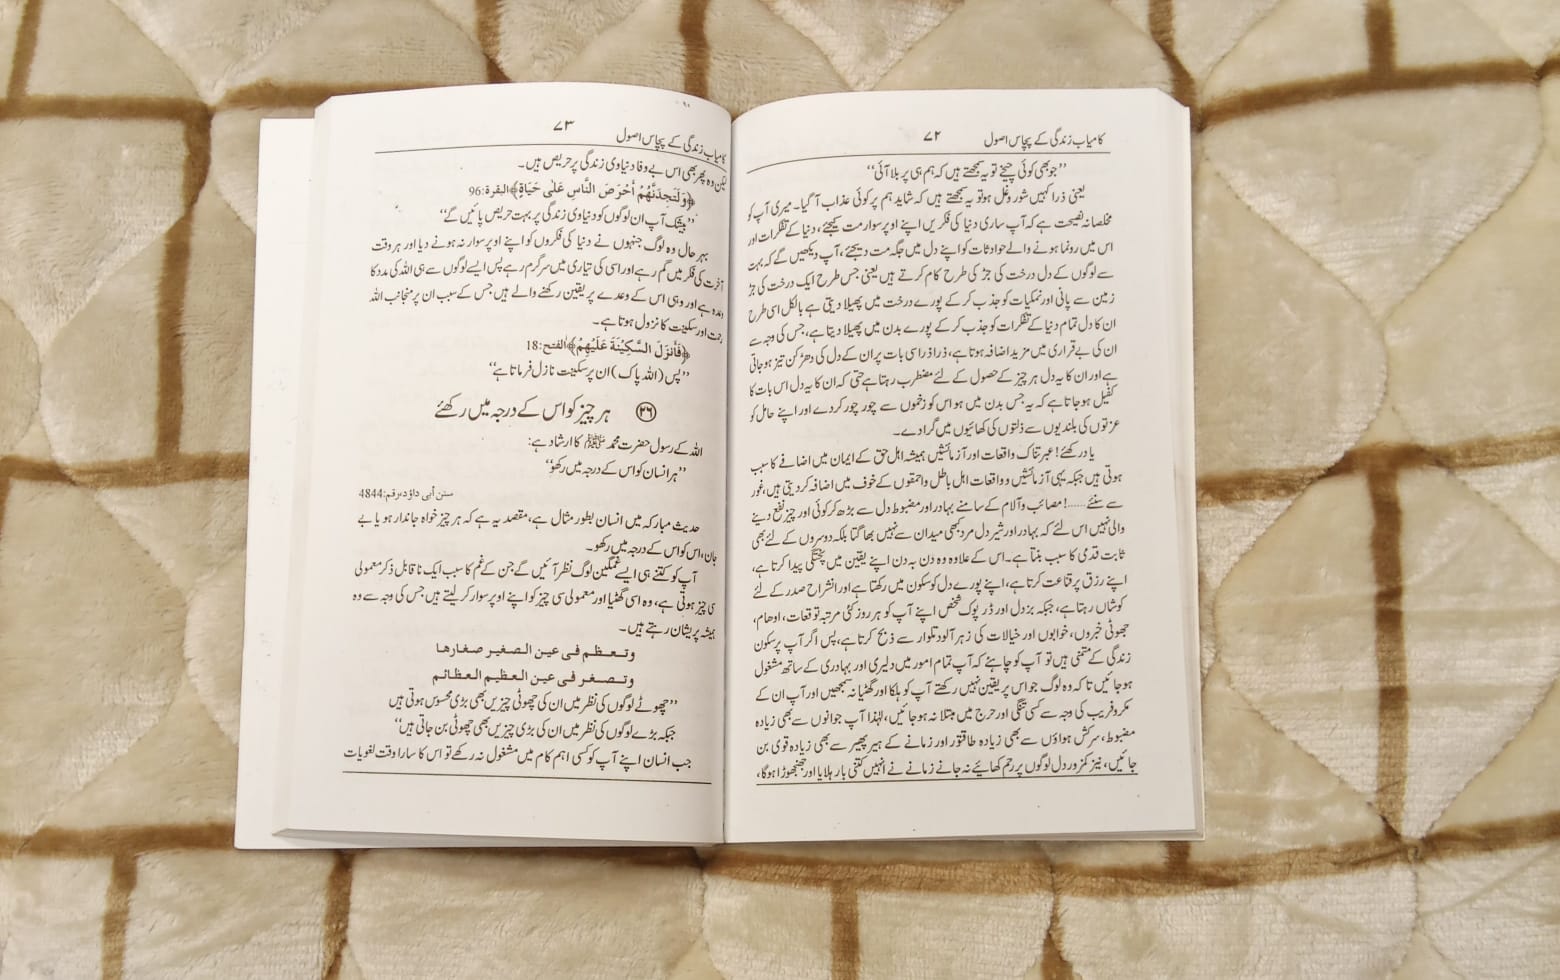 کامیاب زندگی کے پچاس اصول ۷۲
’’جو بھی کوئی چیخے تو یہ سمجھتے ہیں کہ ہم ہی پر بلا آئی‘‘
یعنی ذرا کہیں شور و غل ہو تو یہ سمجھتے ہیں کہ شاید ہم پر کوئی عذاب آ گیا۔ میری آپ کو
مخلصانہ نصیحت ہے کہ آپ ساری دنیا کی فکریں اپنے اوپر سوار مت کیجئے، دنیا کے تفکرات اور
اس میں رونما ہونے والے حوادثات کو اپنے دل میں جگہ مت دیجئے، آپ دیکھیں گے کہ بہت
سے لوگوں کے دل درخت کی جڑ کی طرح کام کرتے ہیں یعنی جس طرح ایک درخت کی جڑ
زمین سے پانی اور نمکیات کو جذب کر کے پورے درخت میں پھیلا دیتی ہے بالکل اسی طرح
ان کا دل تمام دنیا کے تفکرات کو جذب کر کے پورے بدن میں پھیلا دیتا ہے، جس کی وجہ سے
ان کی بے قراری میں مزید اضافہ ہوتا ہے، ذرا ذرا سی بات پر ان کے دل کی دھڑکن تیز ہو جاتی
ہے اور ان کا یہ دل ہر چیز کے حصول کے لئے مضطرب رہتا ہے حتیٰ کہ ان کا یہ دل اس بات کا
کفیل ہو جاتا ہے کہ یہ جس بدن میں ہو اس کو زخموں سے چور چور کر دے اور اپنے حامل کو
عزتوں کی بلندیوں سے ذلتوں کی کھائیوں میں گرا دے۔
یاد رکھئے! عبرتناک واقعات اور آزمائشیں ہمیشہ اہل حق کے ایمان میں اضافے کا سبب
ہوتی ہیں جبکہ یہی آزمائشیں و واقعات اہل باطل و احمقوں کے خوف میں اضافہ کر دیتی ہیں، غور
سے سنئے......! مصائب و آلام کے سامنے بہادر اور مضبوط دل سے بڑھ کر کوئی اور چیز نفع دینے
والی نہیں اس لئے کہ بہادر اور شیر دل مرد کبھی میدان سے نہیں بھاگتا بلکہ دوسروں کے لئے بھی
ثابت قدمی کا سبب بنتا ہے۔ اس کے علاوہ وہ دن بہ دن اپنے یقین میں پختگی پیدا کرتا ہے،
اپنے رزق پر قناعت کرتا ہے، اپنے پورے دل کو سکون میں رکھتا ہے اور انشراح صدر کے لئے
کوشاں رہتا ہے، جبکہ بزدل اور ڈرپوک شخص اپنے آپ کو ہر روز کئی مرتبہ توقعات، اوھام،
جھوٹی خبروں، خوابوں اور خیالات کی زہر آلود تلوار سے ذبح کرتا ہے، پس اگر آپ پرسکون
زندگی کے متمنی ہیں تو آپ کو چاہئے کہ آپ تمام امور میں دلیری اور بہادری کے ساتھ مشغول
ہو جائیں تا کہ وہ لوگ جو اس پر یقین نہیں رکھتے آپ کو ہلکا اور گھٹیا نہ سمجھیں اور آپ ان کے
مکر و فریب کی وجہ سے کسی تنگی اور حرج میں مبتلا نہ ہو جائیں، لہٰذا آپ جوانوں سے بھی زیادہ
مضبوط، سرکش ہواؤں سے بھی زیادہ طاقتور اور زمانے کے ہیر پھیر سے بھی زیادہ قوی بن
جائیں، نیز کمزور دل لوگوں پر رحم کھائیے نہ جانے زمانے نے انہیں کتنی بار ہلایا اور جھنجھوڑا ہوگا،
کامیاب زندگی کے پچاس اصول ۷۳
لیکن وہ پھر بھی اس بے وفا دنیاوی زندگی پر حریص ہیں۔
﴿وَلَتَجِدَنَّهُمْ أَحْرَصَ النَّاسِ عَلٰى حَيَاةٍ﴾البقرة:96
’’بیشک آپ ان لوگوں کو دنیاوی زندگی پر بہت حریص پائیں گے‘‘
بہر حال وہ لوگ جنہوں نے دنیا کی فکروں کو اپنے اوپر سوار نہ ہونے دیا اور ہر وقت
آخرت کی فکر میں گم رہے اور اسی کی تیاری میں سرگرم رہے پس ایسے لوگوں سے ہی اللہ کی مدد کا
وعدہ ہے اور وہی اس کے وعدے پر یقین رکھنے والے ہیں جس کے سبب ان پر منجانب اللہ
رحمت اور سکینت کا نزول ہوتا ہے۔
﴿فَأَنزَلَ السَّكِيْنَةَ عَلَيْهِمْ﴾الفتح:18
’’پس (اللہ پاک) ان پر سکینت نازل فرماتا ہے‘‘
۲۶ ہر چیز کو اس کے درجہ میں رکھئے
اللہ کے رسول حضرت محمد ﷺ کا ارشاد ہے:
’’ہر انسان کو اس کے درجہ میں رکھو‘‘
سنن أبی داؤد، رقم:4844
حدیث مبارکہ میں انسان بطور مثال ہے، مقصد یہ ہے کہ ہر چیز خواہ جاندار ہو یا بے
جان، اس کو اس کے درجہ میں رکھو۔
آپ کو کتنے ہی ایسے غمگین لوگ نظر آئیں گے جن کے غم کا سبب ایک نا قابل ذکر معمولی
سی چیز ہوتی ہے، وہ اسی گھٹیا اور معمولی سی چیز کو اپنے اوپر سوار کر لیتے ہیں جس کی وجہ سے وہ
ہمیشہ پریشان رہتے ہیں۔
وتـعـظـم فـی عیـن الـصـغیـر صغـارهـا
وتـصـغـر فـی عیـن الـعظیـم العظـائـم
’’چھوٹے لوگوں کی نظر میں ان کی چھوٹی چیزیں بھی بڑی محسوس ہوتی ہیں
جبکہ بڑے لوگوں کی نظر میں ان کی بڑی چیزیں بھی چھوٹی بن جاتی ہیں‘‘
جب انسان اپنے آپ کو کسی اہم کام میں مشغول نہ رکھے تو اس کا سارا وقت لغویات